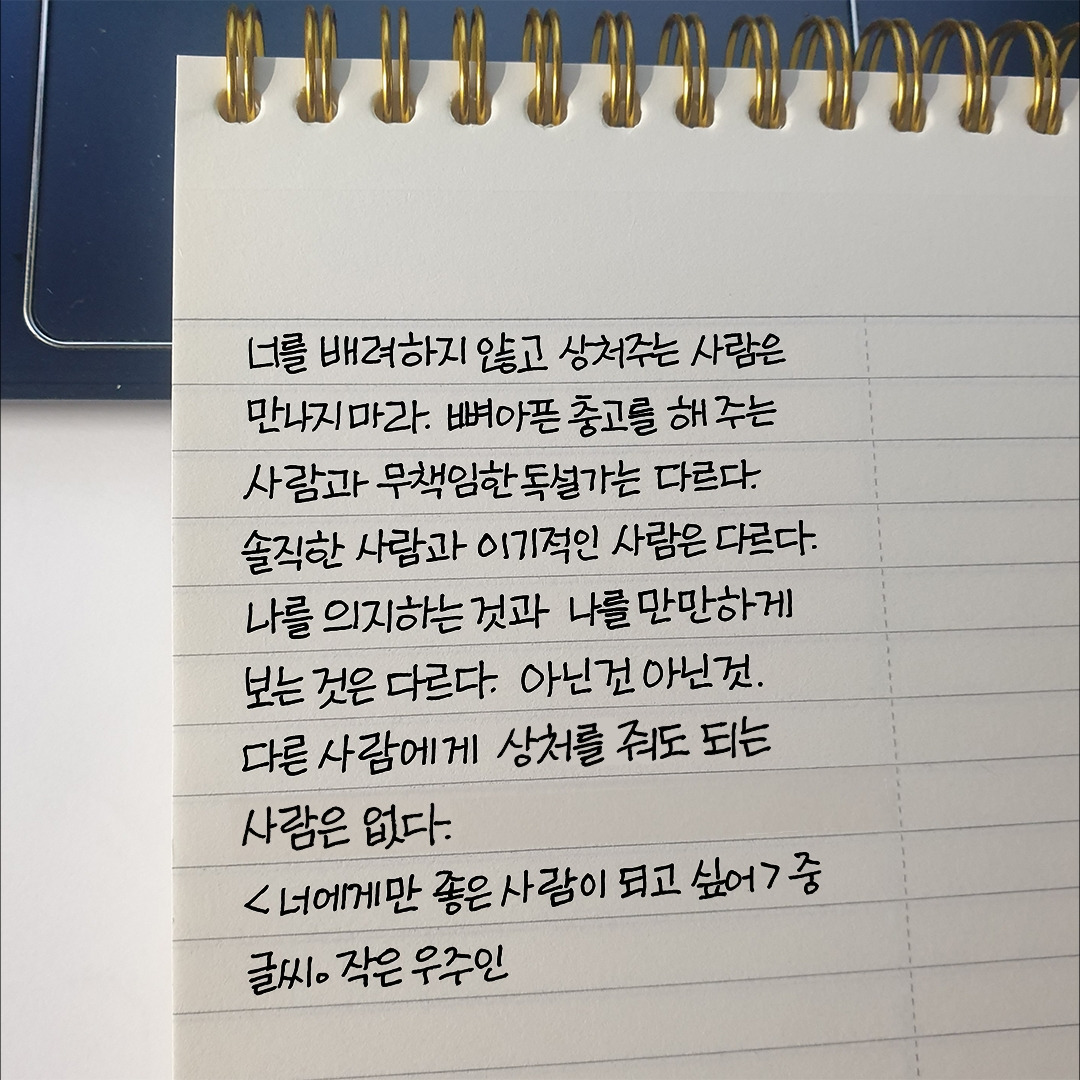 너를 배려하지 않고 상처주는 사람은
만나지마라. 뼈아픈 충고를 해 주는
사람과 무책임한 독설가는 다르다.
솔직한 사람과 이기적인 사람은 다르다.
나를 의지하는 것과 나를 만만하게
보는 것은 다르다. 아닌건 아닌것.
다른 사람에게 상처를 줘도 되는
사람은 없다.
<너에게만 좋은 사람이 되고 싶어> 중
글씨。작은 우주인